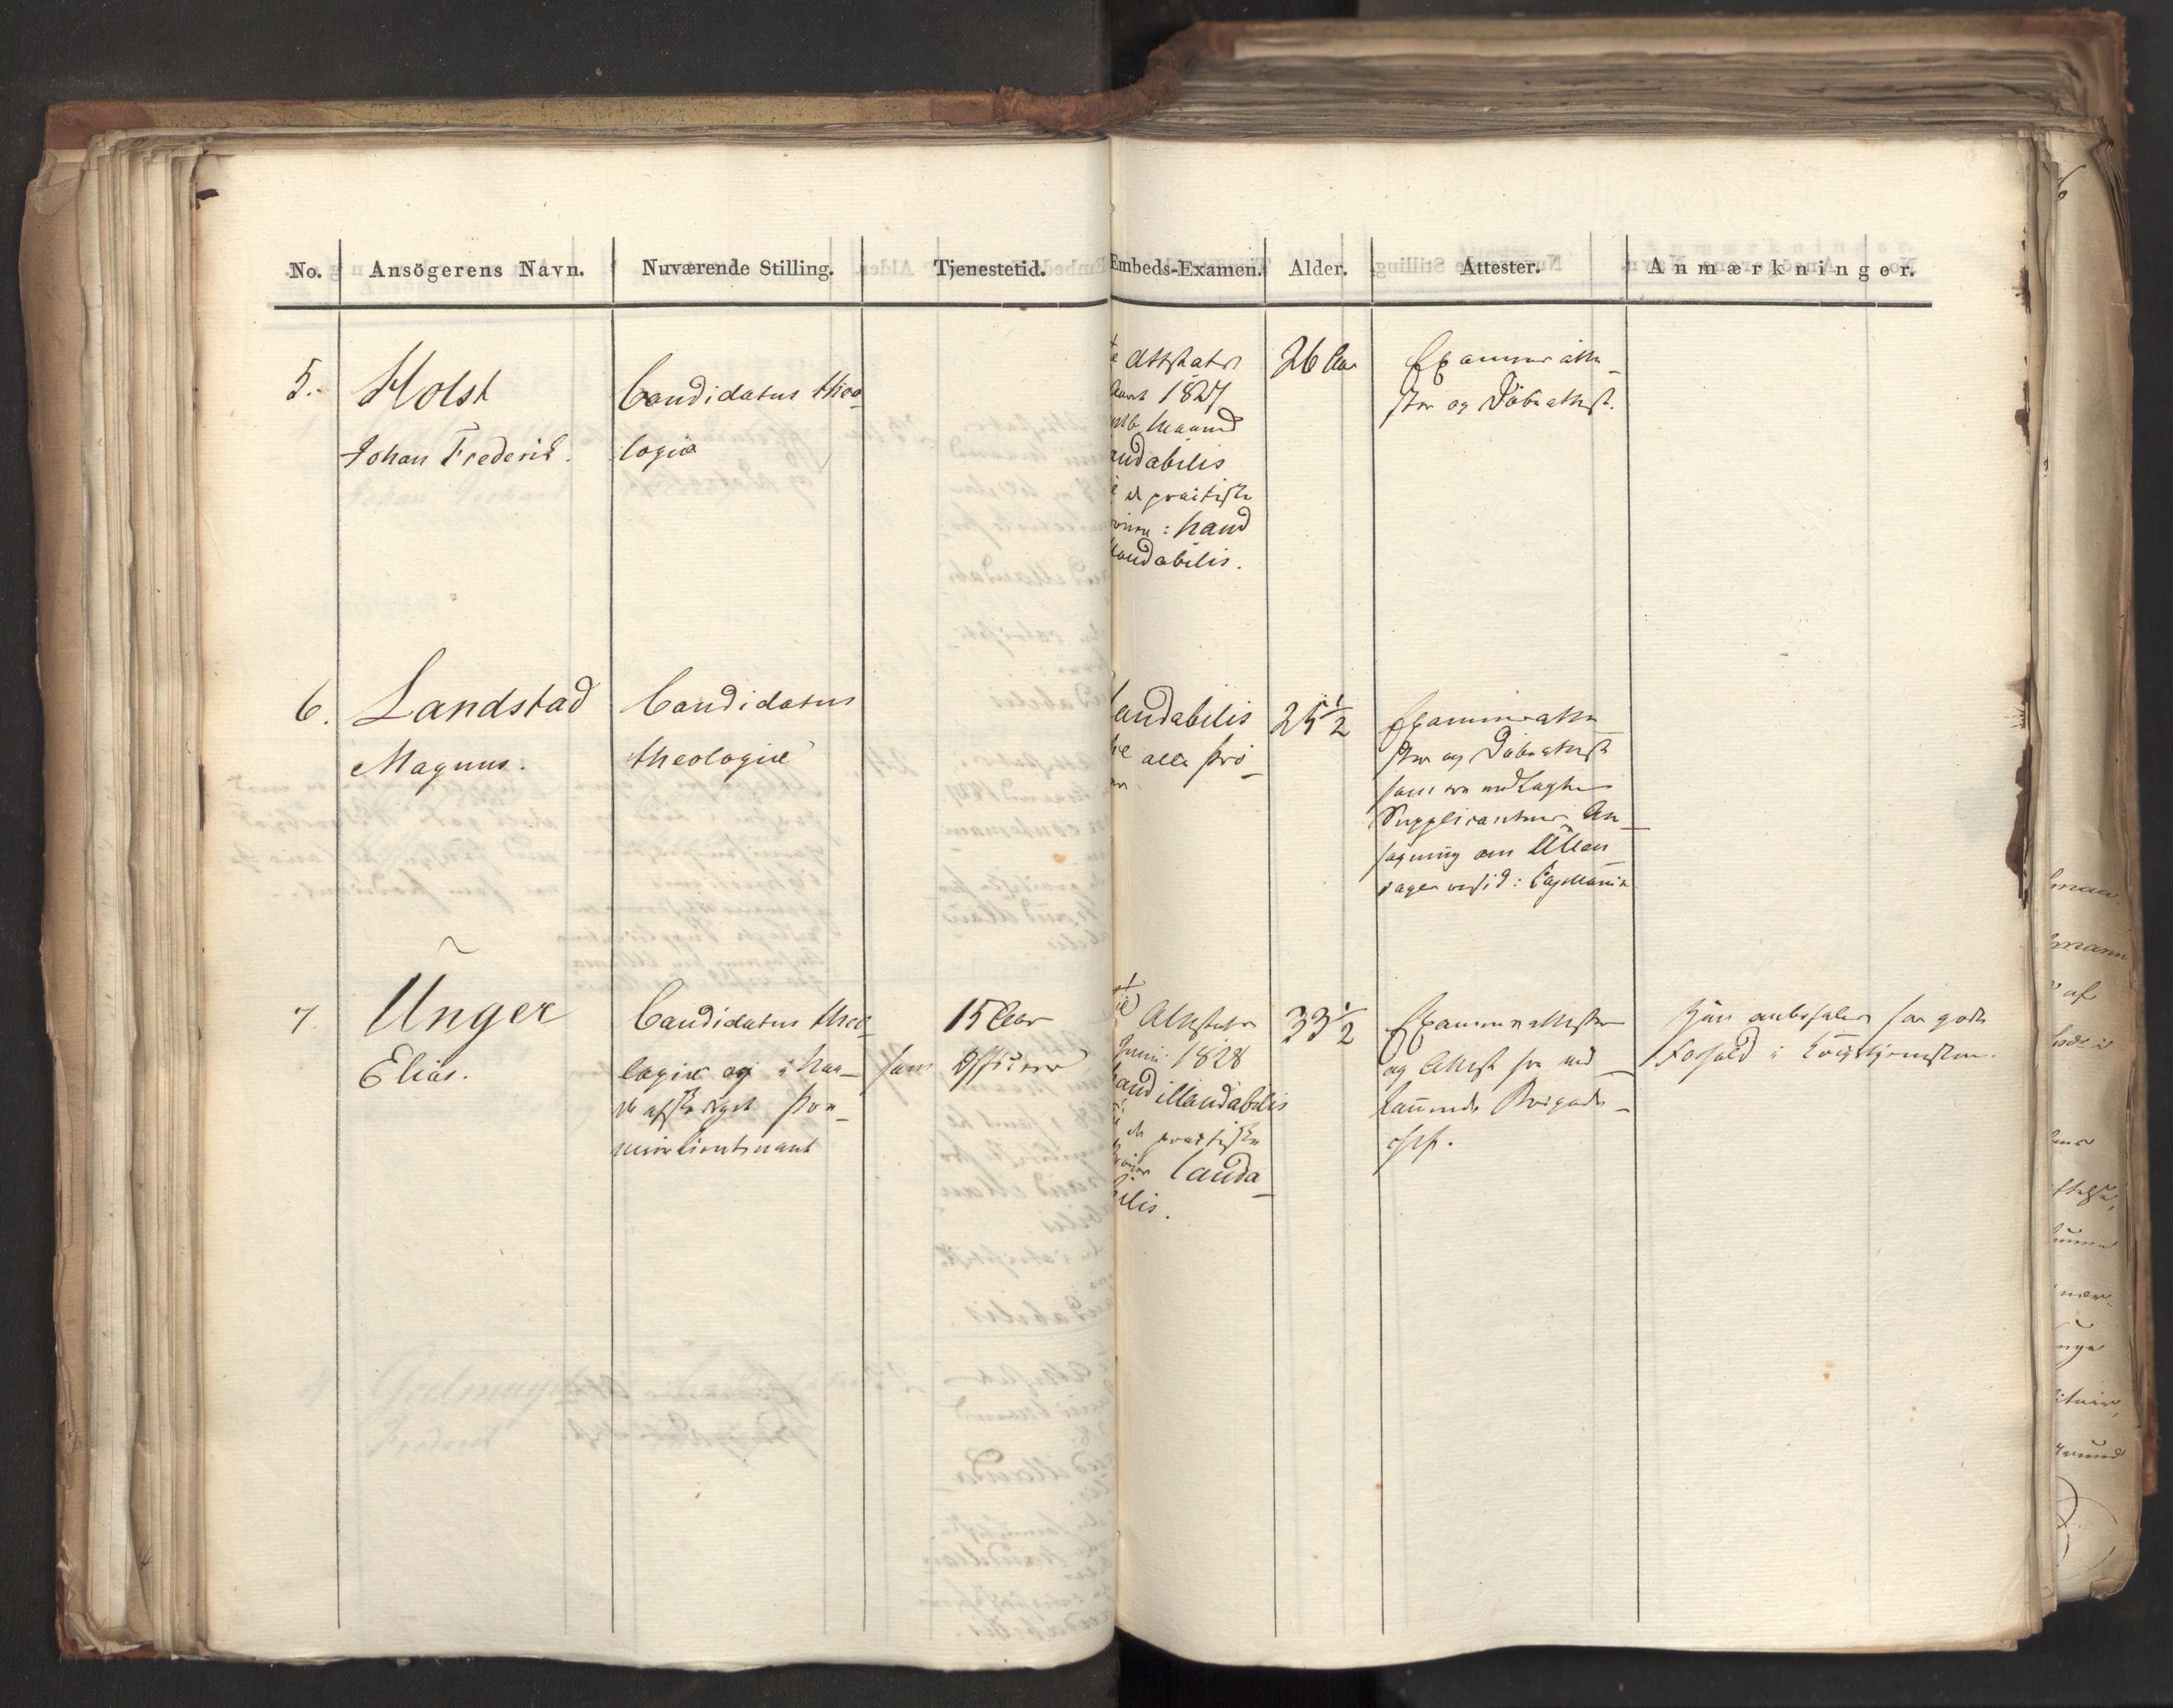 No. Ansögerens Navn. Nuværende Stilling. Tjenestetid. Embeds-Examen. Alder. Attester. Anmærkninger.
5.
Holst
Johan Frederik.
Candidatus theo-
logiæ
Attestats
1827
Maaned
audabilis
practiske
: haud
laudabilis.
26 Aar
Examensatte-
ster og Döbeattest.
6.
Landstad
Magnus.
Candidatus
theologiæ
laudabilis
alle Prö-
25 1/2
Examensatte-
ster og Döbeattest
som ere vedlagte
Supplicantens An-
søgning om Ullen-
sagers resid: Capellanie
7.
Unger
Elias.
Candidatus theo-
logiæ og i Naa-
de afskediget Pre-
mierlieutenant
15 Aar
som Officeer
Attestats
Juni 1828
haud illaudabilis
practiske
lauda-
bilis.
33 1/2
Examensattester
og Attest fra ved-
kommende Brigade-
chef.
Han anbefales for godt
Forhold i Krigstjenesten.